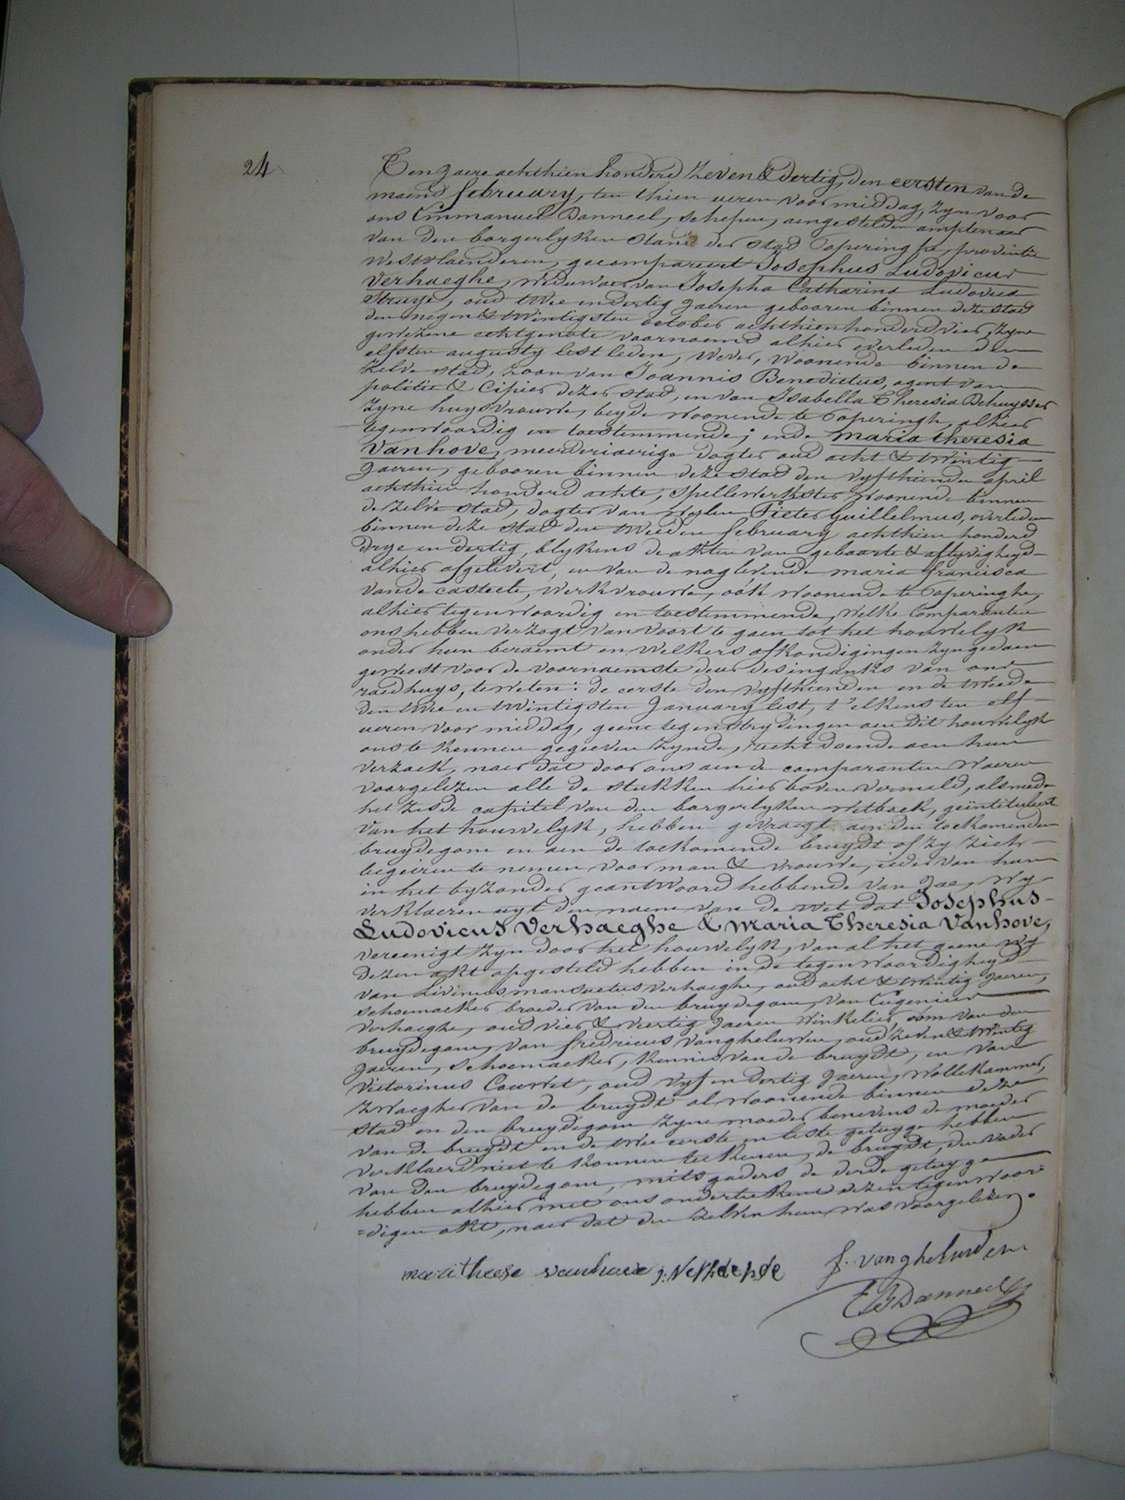 24
Ten jaere achthien honderd zeven & dertig, den eersten van de
maend february, ten thien ueren voor middag, zyn voor
ons Emmanuel Danneel, schepen, aengestelden amptenaer
van den borgerlyken stand der stad Poperinghe, provintie
Westvlaenderen, gecompareert Josephus Ludovicus
Verhaeghe, weduwaer van Josepha Catharina Ludovica
Struye, oud twee en dertig jaeren gebooren binnen deze stad
den negen & twintigsten october achthien honderd vier, zyne
gewezene echtgenote voornoemd alhier overleden den
elfsten augusty lest leden, wever, woonende binnen de
zelve stad, zoon van Joannis Benedictus, agent van
politie & Cipier dezer stad, en van Isabella Theresia Dehuysser
zyne huysvrouwe, beyde woonende te Poperinghe, alhier
tegenwoordig en toestemmende; ende maria theresia
Vanhove, meerderjaerige dogter oud acht & twintig
jaeren, gebooren binnen deze stad den vyfthienden april
achthien honderd achte, spellewerkster, woonende binnen
de zelve stad, dogter van wylen Pieter Guillelmus, overleden
binnen deze stad den tweeden february achthien honderd
drye en dertig, blykens de akten van geboorte & aflyvigheyd
alhier afgelevert, en van de naglevende maria francisca
vande casteele, werkvrouwe, ook woonende te Poperinghe,
alhier tegenwoordig en toestemmende, welke Comparanten
ons hebben verzogt van voort te gaen tot het houwelyk
onder hun beraemt en welkers afkondigingen zyn gedaen
geweest voor de voornaemste deur des ingangks van ons
raedhuys, te weten: de eerste den vyfthienden en de tweede
den twee en twintigsten January lest, t'elkens ten elf
ueren voor middag, geene tegenstrydingen aen dit houwelyk
ons te kennen gegeeven zynde, recht doende aen hun
verzoek, naer dat door ons aen de comparanten waeren
voorgelezen alle de stukken hier boven vermeld, alsmede
het zesde capitel van den borgerlyken wetboek, geintituleert
van het houwelyk, hebben gevraegt aen den toekomenden
bruydegom en aen de toekomende bruydt of zy zich
begeiren te nemen voor man & vrouwe, ieder van hun
in het byzonder geantwoord hebbende van Jae, wy
verklaeren uyt den naeme van de wet dat Josephus
Ludovicus Verhaeghe & Maria Theresia Vanhove,
vereenigt zyn door het houwelyk, van al het geene wy
dezen akt opgesteld hebben in de tegenwoordigheyd
van Livinus mansuetus verhaeghe, oud acht & twintig jaeren,
schoemaeker broeder van den bruydegom, van Eugenius
Verhaeghe, oud vier & viertig jaeren winkelier, oom van den
bruydegom, van fredricus Vangheluwen, oud zeven & twintig
jaeren, schoemaeker, kennis van de bruydt, en van
Victorinus Couwet, oud vyf en dertig jaeren, wollekammer,
zwaegher van de bruydt al woonende binnen deze
stad en den bruydegom zyne moeder benevens de moeder
van de bruydt en de twee eerste en leste getuyge hebben
verklaerd niet te konnen teekenen, de bruydt, den vader
van den bruydegom, mitsgaders de derde getuyge
hebben alhier met ons onderteekent dezen tegenwoor=
=digen akt, naer dat den zelven hun was voorgelezen.
f. vangheluwen
marithese vanhove
E B Danneel